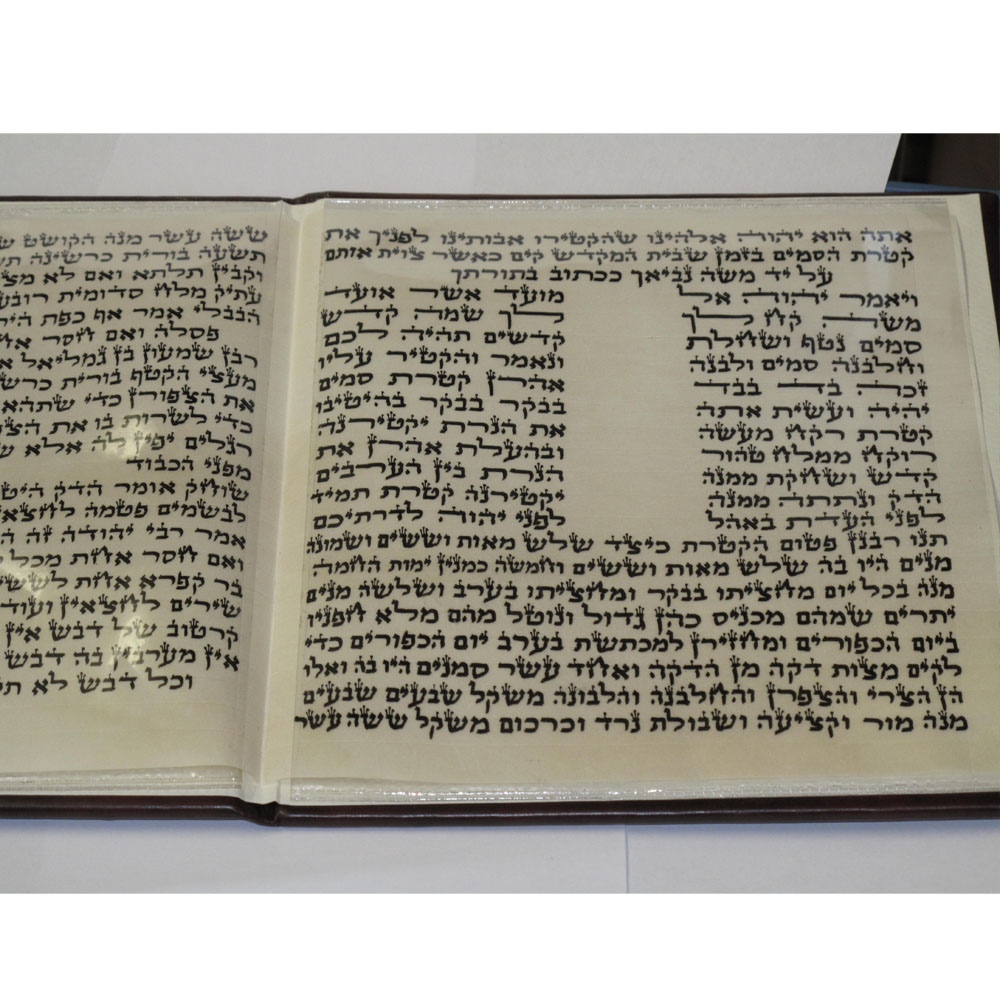 אתה הוא יהוה אלהינו שהקטירו אבותינו לפניך את
קטרת הסמים בזמן שבית המקדש קים כאשר צוית אותם
על יד משה נביאך ככתוב בתורתך
ויאמר יהוה אל
משה קח לך
סמים נטף ושחלת
וחלבנה סמים ולבנה
זכה בד בבד
יהיה ועשית אתה
קטרת רקח מעשה
רוקח ממלח טהור
קדש ושחקת ממנה
הדק ונתתה ממנה
לפני העדת באהל
מועד אשר אועד
לך שמה קדש
קדשים תהיה לכם
ונאמר והקטיר עליו
אהרן קטרת סמים
בבקר בבקר בהיטיבו
את הנרת יקטירנה
ובהעלת אהרן את
הנרת בין הערבים
יקטירנה קטרת תמיד
לפני יהוה לדרתיכם
תנו רבנן פטום הקטרת כיצד שלש מאות וששים ושמונה
מנים היו בה שלש מאות וששים וחמשה כמנין ימות החמה
מנה בכל יום מחציתו בבקר ומחציתו בערב ושלשה מנים
יתרים שמהם מכניס כהן גדול ונוטל מהם מלא חפניו
ביום הכפורים ומחזירן למכתשת בערב יום הכפורים כדי
לקים מצות דקה מן הדקה ואחד עשר סמנים היו בה ואלו
הן הצרי והצפרן והחלבנה והלבונה משקל שבעים שבעים
מנה מור וקציעה ושבולת נרד וכרכום משקל ששה עשר
ששה עשר מנה הקושט
תשעה בורית כרשינה
וקבין תלתא ואם לא
עתיק מלח סדומית
הבבלי אמר אף כפת
פסלה ואם חסר
רבן שמעון בן גמליאל
מעצי הקטף בורית
את הצפורן כדי שתהא
כדי לשרות בו את
רגלים יפין לה אלא
מפני הכבוד
שוחק אומר הדק
לבשמים פטמה
אמר רבי יהודה זה
ואם חסר אחת מכל
בר קפרא אחת
שירים לחצאין ועוד
קרטוב של דבש אין
אין מערבין בה דבש
וכל דבש לא